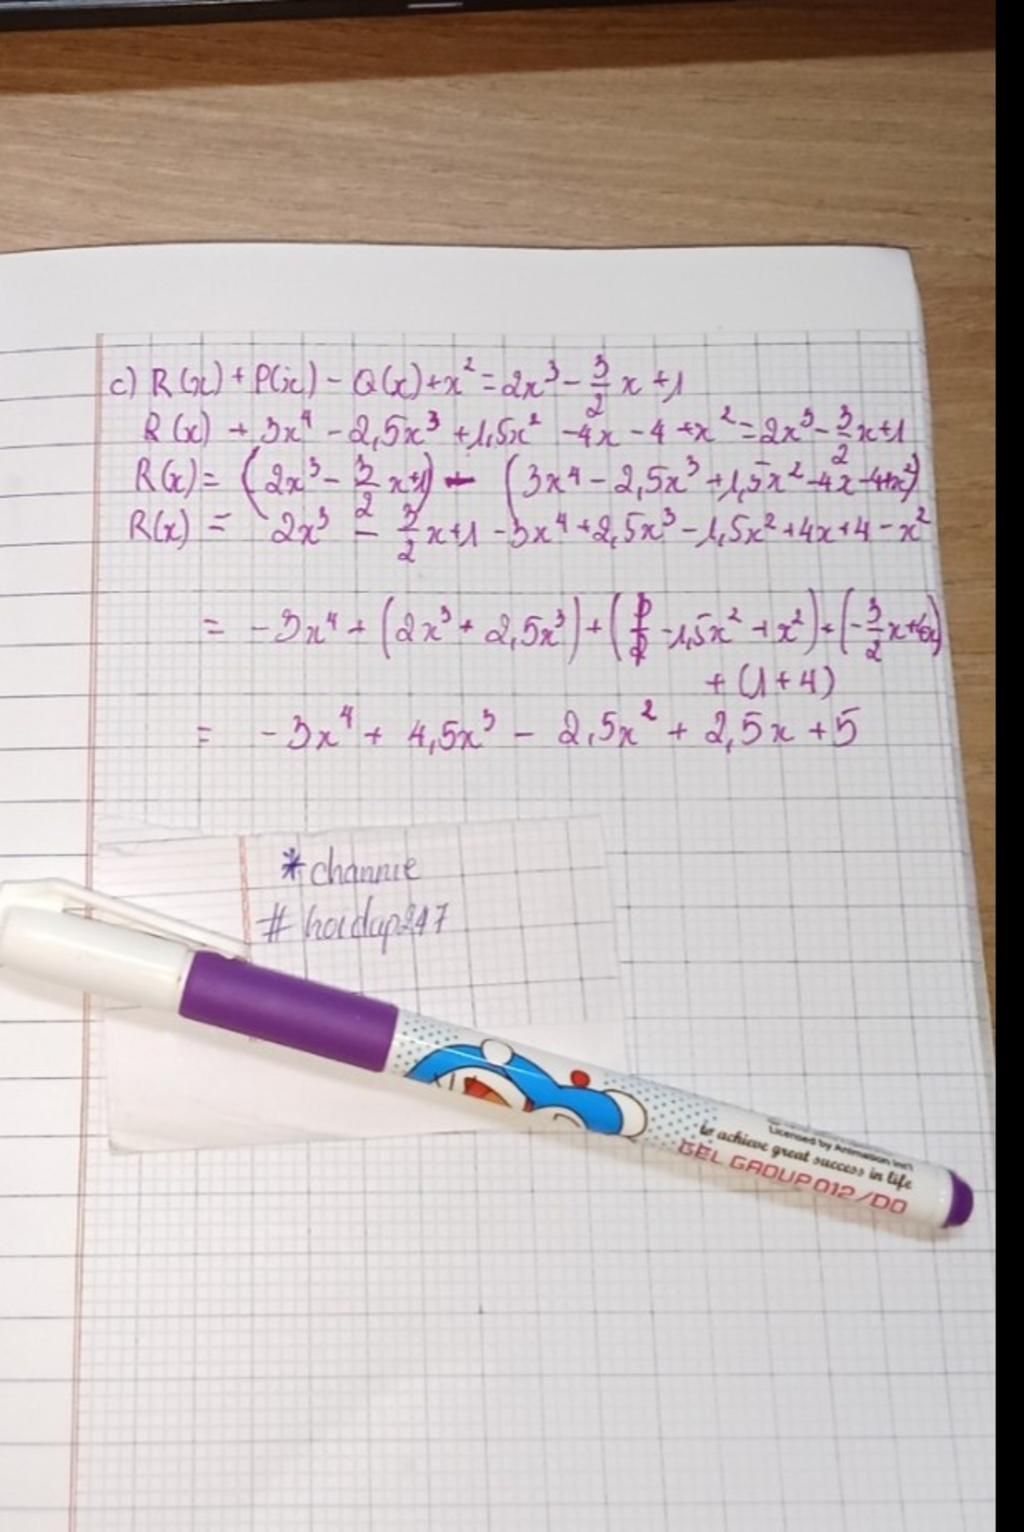 c) R(x) + P(x) - Q(x) + x² = 2x³ - 3/2 x + 1
R(x) + 3x⁴ - 2,5x³ + 1,5x² - 4x - 4 + x² = 2x³ - 3/2 x + 1
R(x) = (2x³ - 3/2 x + 1) - (3x⁴ - 2,5x³ + 1,5x² - 4x - 4 + x²)
R(x) = 2x³ - 3/2 x + 1 - 3x⁴ + 2,5x³ - 1,5x² + 4x + 4 - x²
= -3x⁴ + (2x³ + 2,5x³) + ( -1,5x² + x²) + (-3/2 x + 4x)
+ (1 + 4)
= -3x⁴ + 4,5x³ - 2,5x² + 2,5x + 5
*channie
# hoidap247
Licensed by Animation Int'l
to achieve great success in life
GEL GROUP 012/DO